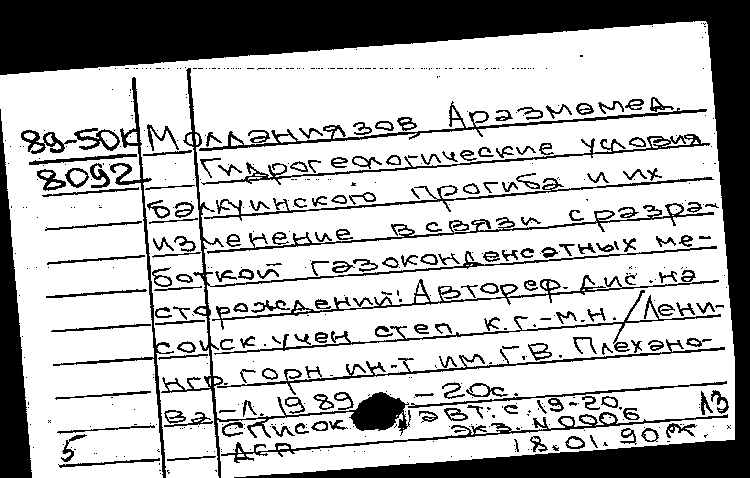 89-50К Молланиязов Аразмамед.
8092 Гидрогеологические условия
балкуинского прогиба и их
изменение в связи с разра-
боткой газоконденсатных ме-
сторождений: Автореф. дис. на
соиск. учен степ. к.г.-м.н. / Лени-
нгр. горн. ин-т им. Г.В. Плехано-
ва -Л. 1989 -20с.
Список авт: с. 19-20. 13
5 ДСП экз. N 0006.
18.01.90